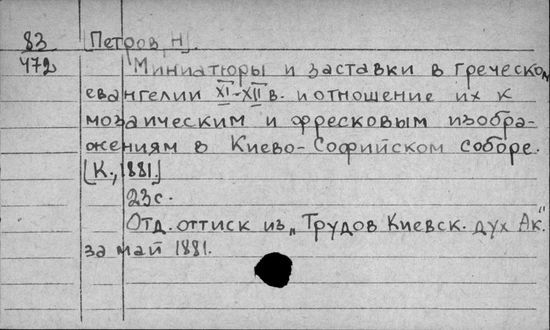 83 [Петров, Н].
472 Миниатюры и заставки в греческом
евангелии XI-XII в. и отношение их к
мозаическим и фресковым изобра-
жениям в Киево-Софийском соборе.
[К., 1881.]
23 с.
Отд. оттиск из „Трудов Киевск. дух Ак."
за май 1881.